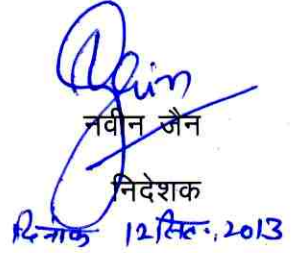 नवीन जैन
निदेशक
दिनांक 12 सित., 2013